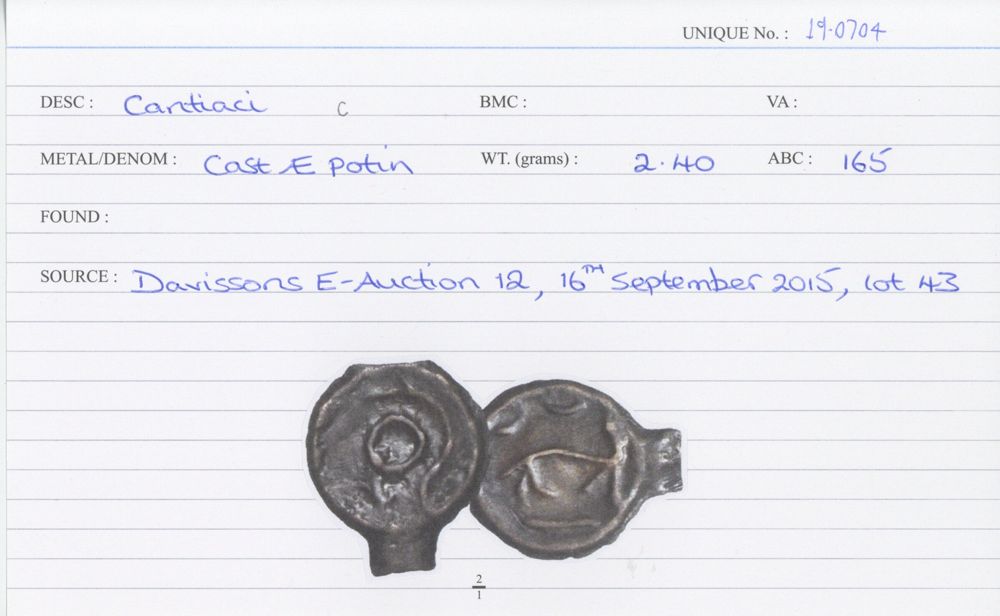 UNIQUE No. : 19-0704
DESC : Cantiaci C BMC : VA :
METAL/DENOM : Cast Æ Potin WT. (grams) : 2.40 ABC : 165
FOUND :
SOURCE : Davissons E-Auction 12, 16TH September 2015, lot 43
2
1